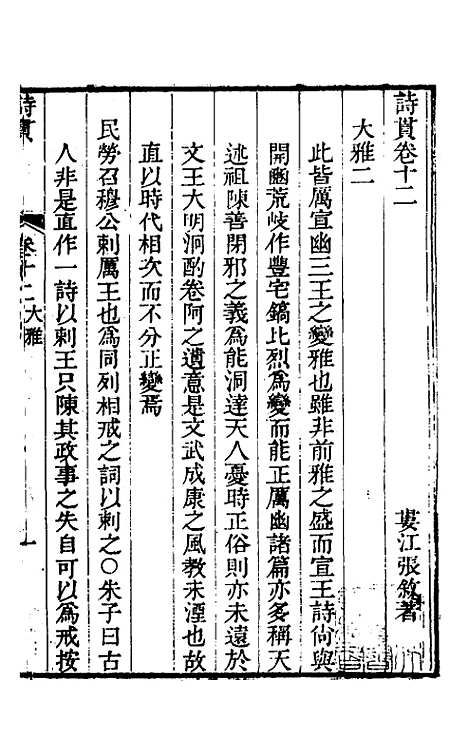 詩貫卷十二
婁江張敘著
大雅二
此皆厲宣幽三王之變雅也雖非前雅之盛而宣王詩尙與
開豳荒岐作豐宅鎬比烈爲變而能正厲幽諸篇亦多稱天
述祖陳善閉邪之義爲能洞達天人憂時正俗則亦未遠於
文王大明泂酌卷阿之遺意是文武成康之風教未湮也故
直以時代相次而不分正變焉
民勞召穆公刺厲王也爲同列相戒之詞以刺之〇朱子曰古
人非是直作一詩以刺王只陳其政事之失自可以爲戒按
詩貫
卷十二大雅
一